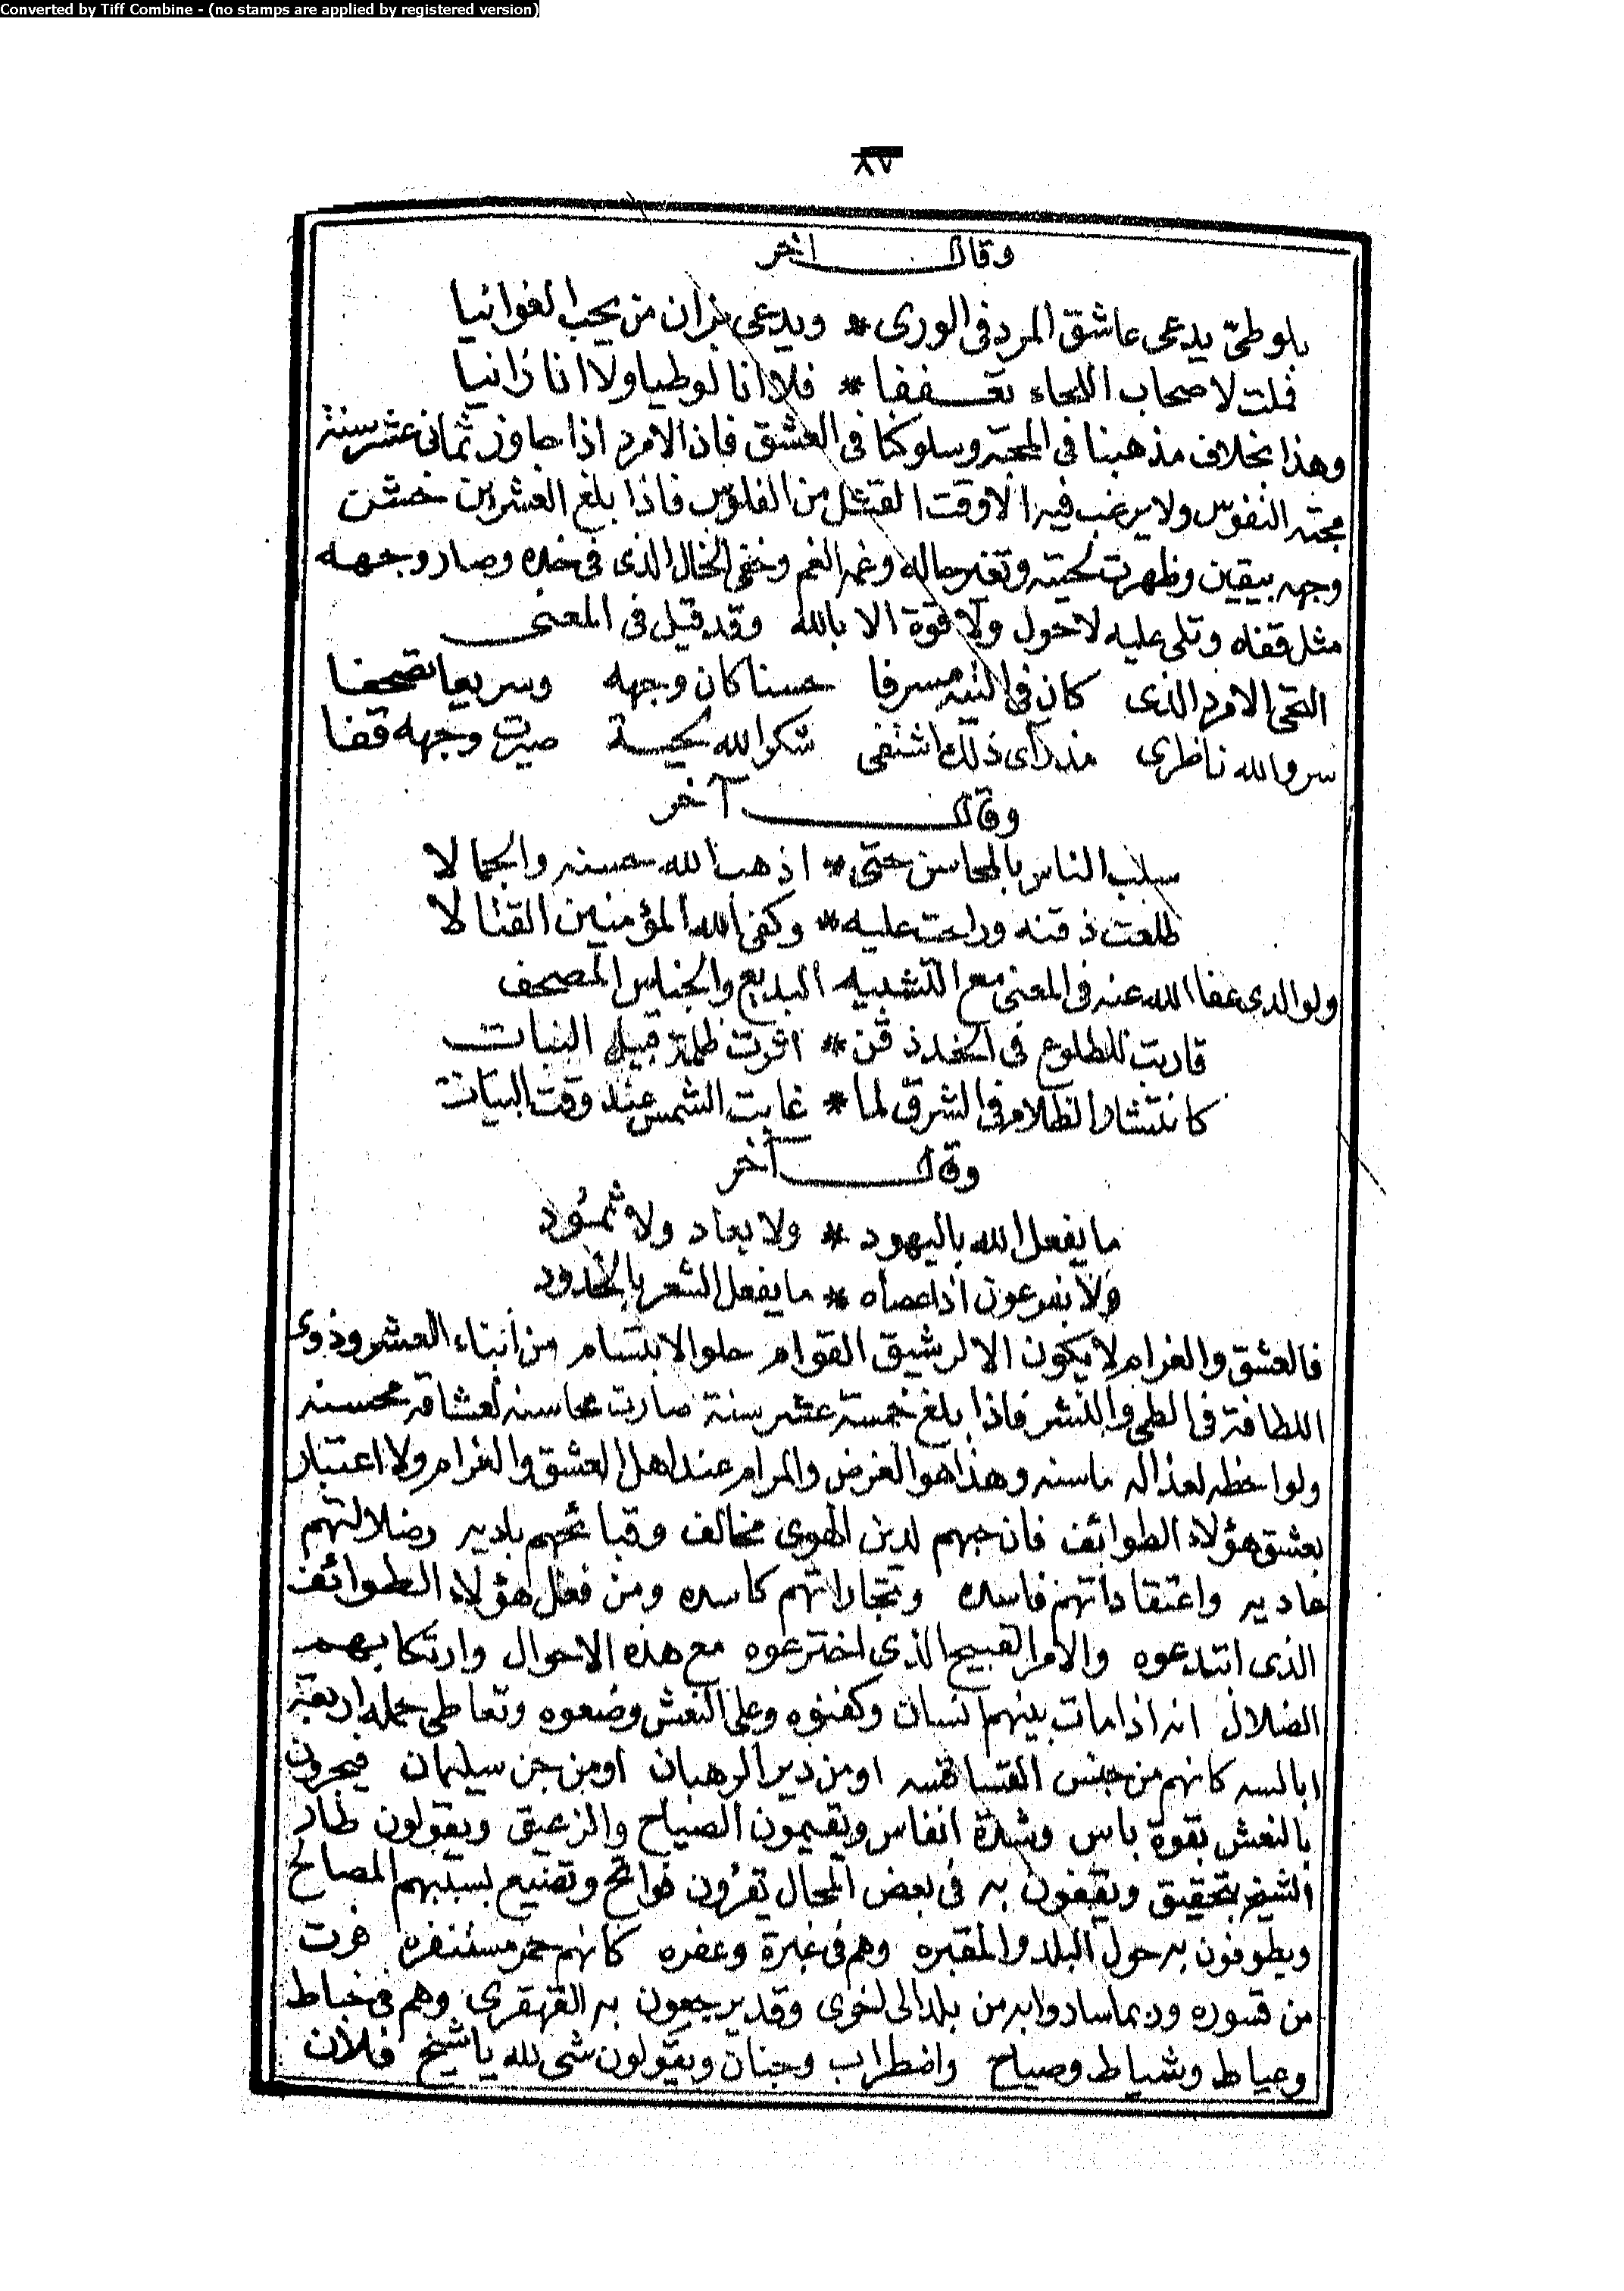 Converted by Tiff Combine - (no stamps are applied by registered version)
٨٧
وقال اخر
بلوطى يدعى عاشق المرد فى الورى * ويدعى بزان من يحب الغوانيا
فملت لاصحاب اللحاء تعففا * فلا انا لوطيا ولا انا زانيا
وهذا بخلاف مذهبنا فى المحبة وسلوكنا فى العشق فان الامرد اذا جاوز ثمانى عشر سنة
مجته النفوس ولا يرغب فيه الا وقت القشل من الفلوس فاذا بلغ العشرين خشن
وجهه بيقين وظهرت لحيته وتغير حاله وغمه الغم وخفى الخال الذى فى خده وصار وجهه
مثل قفاه وتلى عليه لاحول ولا قوة الا بالله وقد قيل فى المعنى
التحى الامرد الذى كان فى التيه مسرفا حسنا كان وجهه وسريعا تصحفا
سر والله ناظرى مذ رأى ذلك اشتفى شكرا لله لحية صيرت وجهه قفا
وقال آخر
سلب الناس بالمحاسن حتى * اذهب الله حسنه والجمالا
طلعت ذقنه وراحت عليه * وكفى الله المؤمنين القتالا
ولوالدى عفا الله عنه فى المعنى مع التشبيه البديع والجناس المصحف
قاربت للطلوع فى الخد ذقن * اثرت ظلمة قبيل النبات
كانتشار الظلام فى الشرق لما * غابت الشمس عند وقت البيات
وقال آخر
ما يفعل الله باليهود * ولا بعاد ولا ثمود
ولا بفرعون اذ اعصاه * ما يفعل الشعر بالخدود
فالعشق والغرام لا يكون الا لرشيق القوام حلو الابتسام من أبناء العشر وذوى
اللطافة فى الطى والنشر فاذا بلغ خمسة عشر سنة صارت محاسنه لعشاقه محسنه
ولواحظه لعذاله ماسنه وهذا هو الغرض والمرام عند اهل العشق والغرام ولا اعتبار
بعشق هؤلاء الطوائف فان حبهم لدين الهوى مخالف وقبائحهم باديه وضلالتهم
عاديه واعتقاداتهم فاسده وتجاراتهم كاسده ومن فعل هؤلاء الطوائف
الذى ابتدعوه والامر القبيح الذى اخترعوه مع هذه الاحوال وارتكابهم
الضلال انه اذا مات بينهم انسان وكفنوه وعلى النعش وضعوه وتعاطى حمله اربعة
ابالسه كانهم من جنس القساقسه او من دير الرهبان او من جن سيلمان فيجرون
بالنعش بقوة باس وشدة انفاس ويقيمون الصياح والزعيق ويقولون طار
الشيخ بتحقيق ويقفون به فى بعض المحال يقرؤن فواتح وتضيع بسببهم المصالح
ويطوفون به حول البلد والمقبره وهم فى غبرة وعفره كانهم حمر مستنفره فرت
من قسوره وربما ساروا به من بلد الى اخرى وقد يرجعون به القهقرى وهم فى خباط
وعياط وشياط وصياح واضطراب وجنان ويقولون شى لله يا شيخ فلان